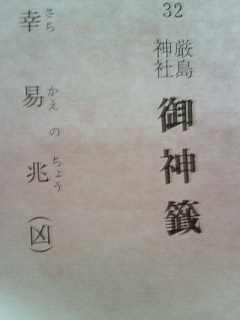 32
厳島神社
御神籤
幸易の兆(凶)
さち かえ ちょう